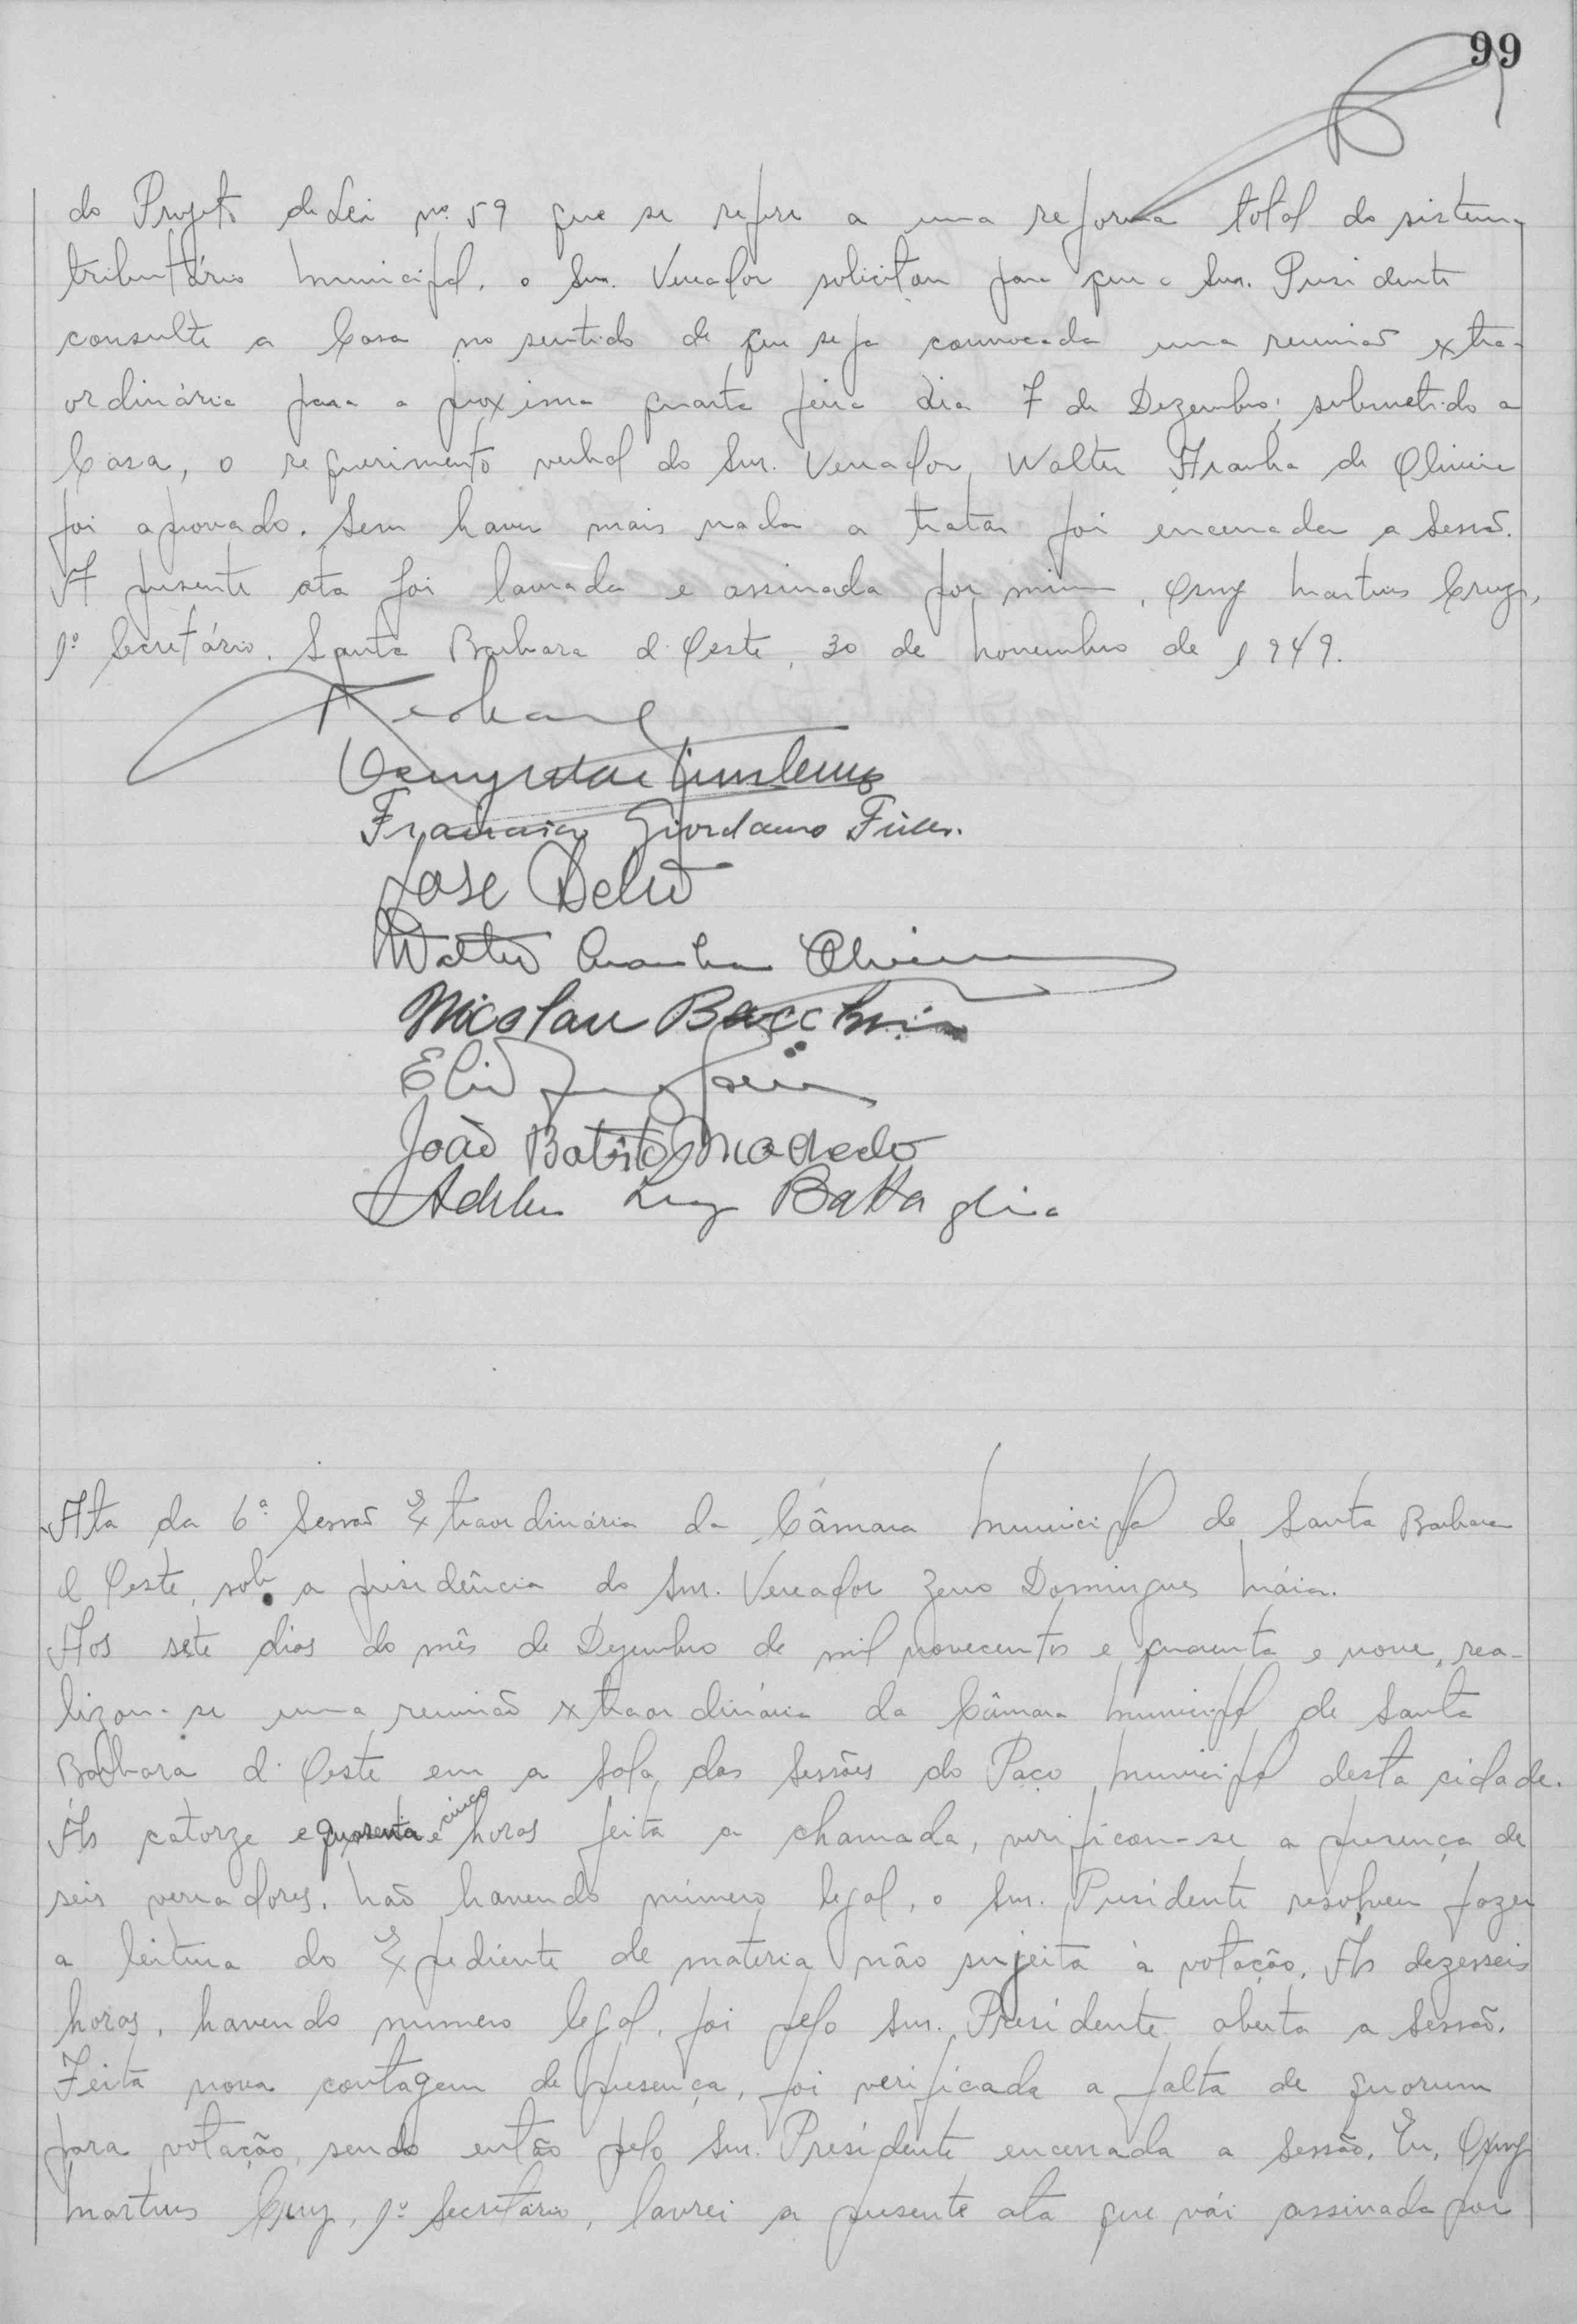 99
do Projeto de Lei nº 59 que se refere a uma reforma total do sistema
tributário municipal. o Snr. Vereador solicitou para que o Snr. Presidente
consulte a Casa no sentido de que seja convocada uma reunião extra-
ordinária para a proxima quarta feira dia 7 de Dezembro; submetido a
Casa, o requerimento verbal do Snr. Vereador, Walter Aranha de Oliveira
foi aprovado. Sem haver mais nada a tratar foi encerrada a Sessão.
A presente ata foi lavrada e assinada por mim, Osmy Martins Cruz,
1º Secretário. Santa Barbara d'Oeste, 30 de Novembro de 1949.
Francisco Giordano
José
Walter Aranha Oliveira
Nicolau Bacchin
João Batista Macedo
Luiz Battaglia
Ata da 6ª Sessão Extraordinária da Câmara Municipal de Santa Barbara
d'Oeste, sob a presidência do Snr. Vereador Zeno Domingues Máia.
Aos sete dias do mês de Dezembro de mil novecentos e quarenta e nove, rea-
lizou-se uma reunião extraordinária da Câmara Municipal de Santa
Barbara d'Oeste em a Sala das Sessões do Paço Municipal desta cidade.
Ás catorze e quarenta e cinco horas feita a chamada, verificou-se a presença de
seis vereadores. Não havendo número legal, o Snr. Presidente resolveu fazer
a leitura do Expediente de materia não sujeita à votação. Ás dezesseis
horas, havendo numero legal, foi pelo Snr. Presidente aberta a Sessão.
Feita nova contagem de presença, foi verificada a falta de quorum
para votação, sendo então pelo Snr. Presidente encerrada a Sessão. Eu, Osmy
Martins Cruz, 1º Secretário, lavrei a presente ata que vái assinada por